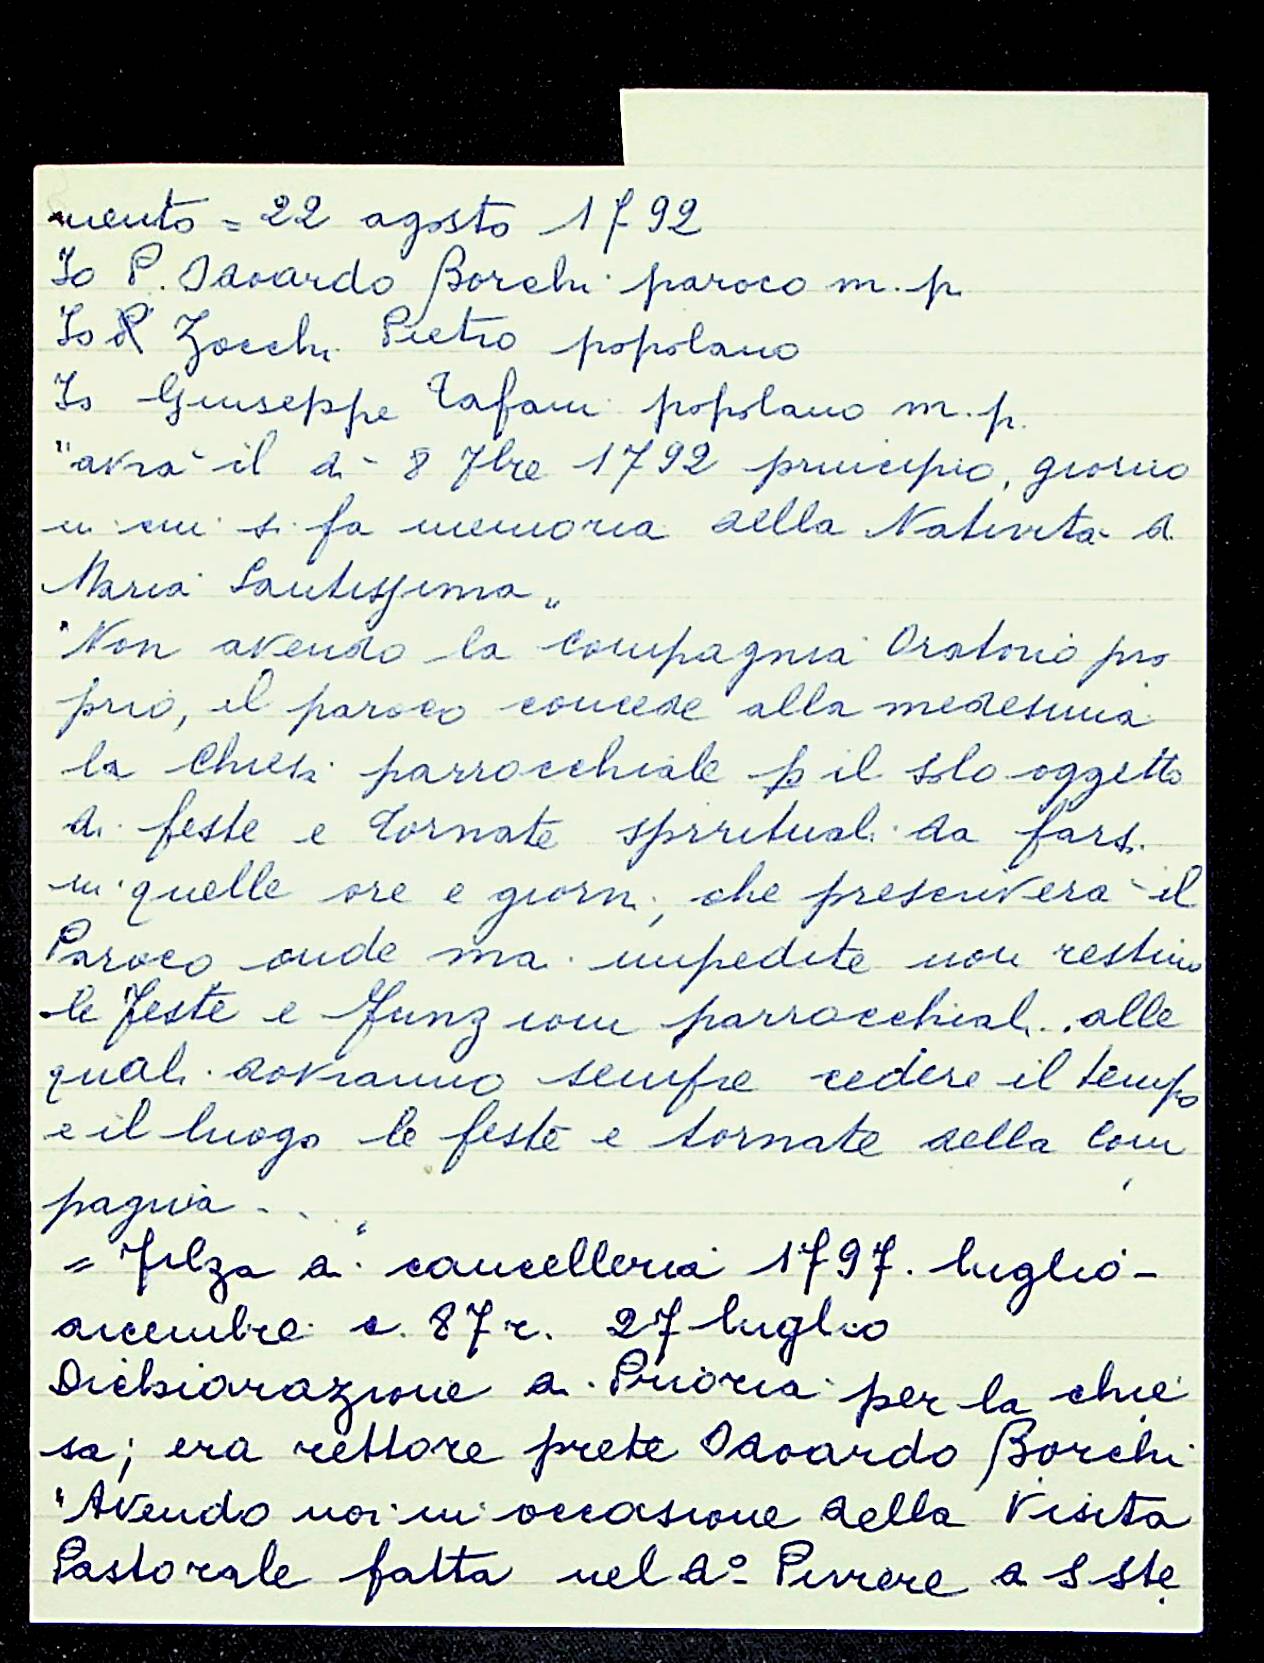 mento = 22 agosto 1792
Io P. Odoardo Borchi paroco m. p.
Io Zocchi Pietro popolano
Io Giuseppe Tafani popolano m. p.
"avrà il dì 8 7bre 1792 principio, giorno
in cui si fa memoria della Natività di
Maria Santissima"
"Non avendo la Compagnia Oratorio pro
prio, il paroco concede alla medesima
la Chiesa parrocchiale p il solo oggetto
di feste e tornate spirituali da farsi
in quelle ore e giorni, che prescriverà il
Paroco onde mai impedite non restino
le Feste e Funzioni parrocchiali.. alle
quali dovranno sempre cedere il tempo
e il luogo le feste e tornate della Com
pagnia ...."
= Filza di cancelleria 1797. luglio -
dicembre c. 87r. 27 luglio
Dichiarazione di Prioria per la chie
sa; era rettore prete Odoardo Borchi
"Avendo noi in occasione della Visita
Pastorale fatta nel dº Piviere di S Ste